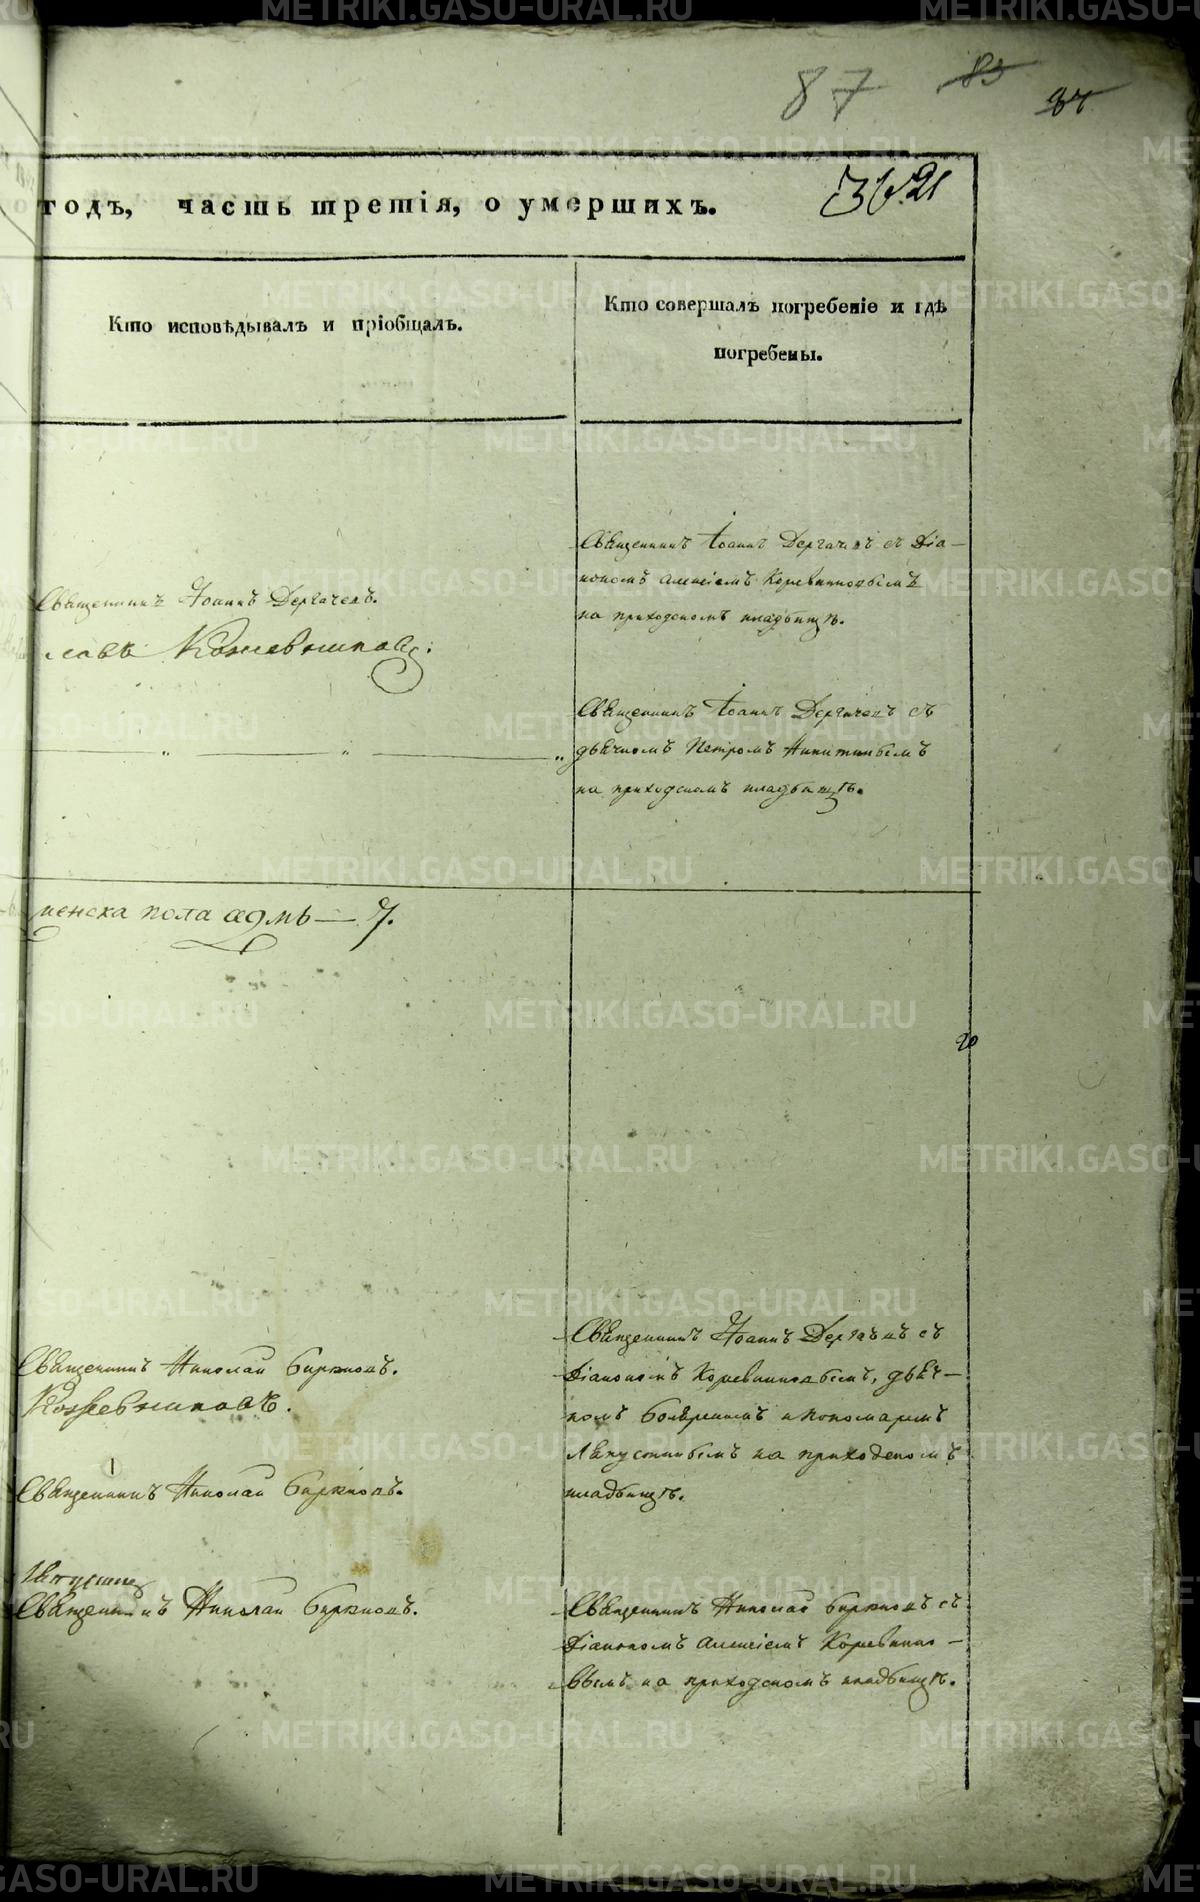 87 83 84
годъ, часть третія, о умершихъ. 21
Кто исповѣдывалъ и пріобщалъ.
Кто совершалъ погребеніе и гдѣ
погребены.
Священникъ Іоаннъ Дергачевъ съ Діа-
кономъ Алексіемъ Кожевниковымъ
на приходскомъ кладбищѣ.
Священникъ Іоаннъ Дергачевъ.
Кожевниковъ.
Священникъ Іоаннъ Дергачевъ съ
дьячкомъ Петромъ Никитинымъ
на приходскомъ кладбищѣ.
женска пола семь — 7.
20
Священникъ Іоаннъ Дергачевъ съ
Діакономъ Кожевниковымъ, дьяч-
комъ и пономаремъ
на приходскомъ
кладбищѣ.
Священникъ Николай Бирюковъ.
Кожевниковъ.
Священникъ Николай Бирюковъ.
Священникъ Николай Бирюковъ.
Священникъ Николай Бирюковъ съ
Діакономъ Алексіемъ Кожевнико-
вымъ на приходскомъ кладбищѣ.
METRIKI.GASO-URAL.RU